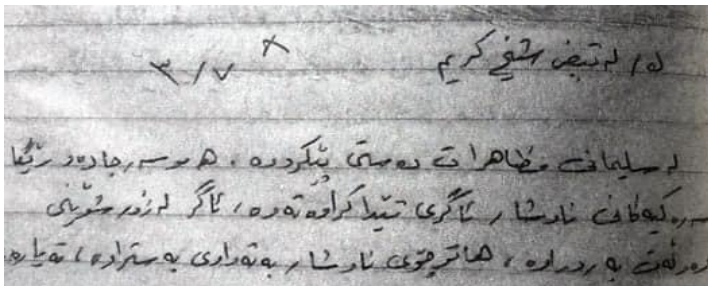 لە/ لەتیف شێخ کریم ٣/٧
لە سلیمانی مظاهرات دەستی پێکردوە، هەموو سەرجادەو رێگا
سەرەکیەکانی ناوشار ئاگری تێدا کراوەتەوە، ئاگر لە زۆر شوێنی
بەرداوە، هاتوچۆی ناوشار بەتەواوی بەستراوە، تەیارە